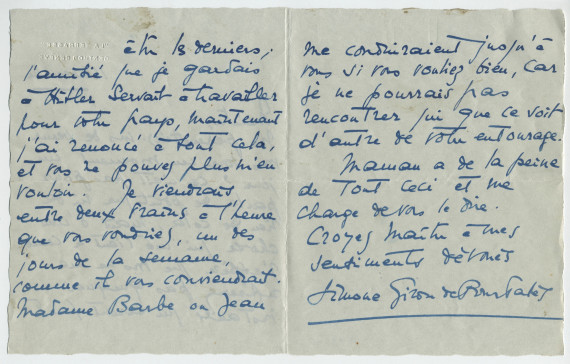 être les derniers ;
l'amitié que je gardais
à Hitler servait à travailler
pour votre pays, maintenant
j'ai renoncé à tout cela,
et vous ne pouvez plus m'en
vouloir. Je viendrais
entre deux trains à l'heure
que vous voudriez, un des
jours de la semaine,
comme il vous conviendrait.
Madame Barbe ou Jean
me conduiraient jusqu'à
vous si vous vouliez bien, car
je ne pourrais pas
rencontrer qui que ce soit
d'autre de votre entourage.
Maman a de la peine
de tout ceci et me
charge de vous le dire.
Croyez Maître à mes
sentiments dévoués
Simone Giron de Pourtalès